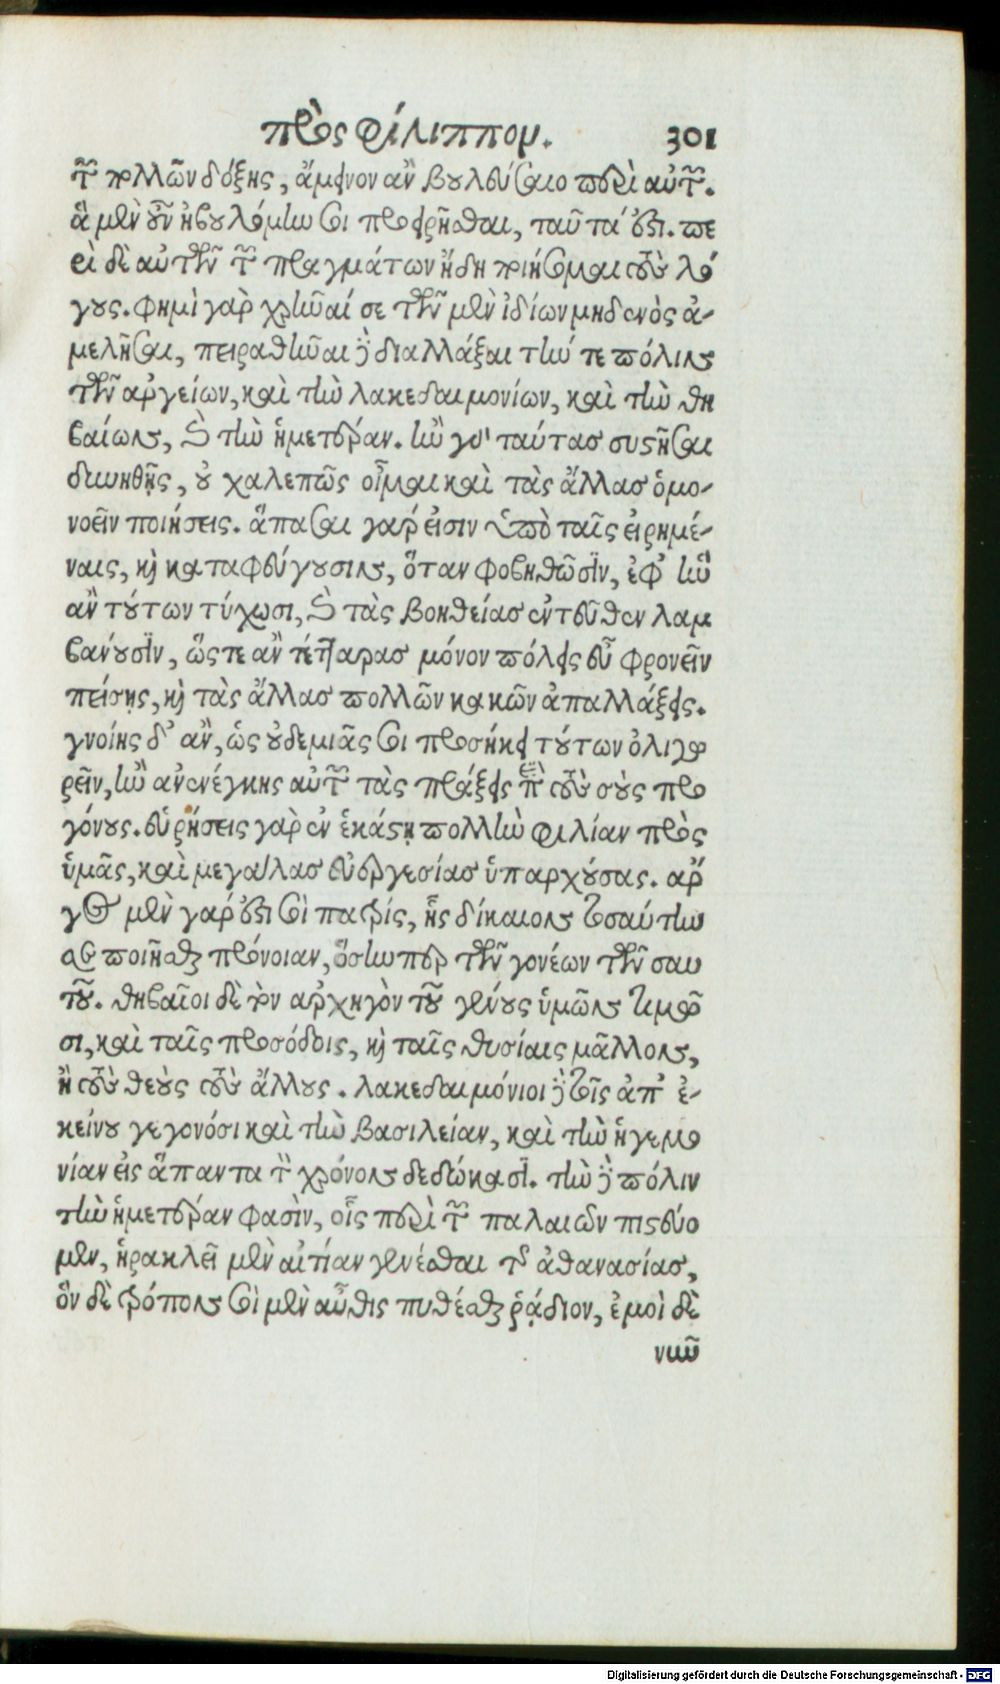 πρὸς φίλιππον. 301
τῆς τῶν πολλῶν δόξης, ἄμεινον ἂν βουλεύσαιο περὶ αὐτῶν.
ἃ μὲν οὖν ἠβουλόμην σοι προειρῆσθαι, ταῦτά ἐστι. πε
ρὶ δὲ αὐτῶν τῶν πραγμάτων ἤδη ποιήσομαι τοὺς λό
γους. φημὶ γὰρ χρῆναί σε τῶν μὲν ἰδίων μηδενὸς ἀ-
μελῆσαι, πειραθῆναι δὲ διαλλάξαι τήν τε πόλιν
τῶν ἀργείων, καὶ τὴν λακεδαιμονίων, καὶ τὴν θη
βαίων, καὶ τὴν ἡμετέραν. ἢν γὰρ ταύτας συστῆσαι
δυνηθῇς, οὐ χαλεπῶς οἶμαι καὶ τὰς ἄλλας ὁμο-
νοεῖν ποιήσεις. ἅπασαι γάρ εἰσιν ὑπὸ ταῖς εἰρημέ-
ναις, καὶ καταφεύγουσιν, ὅταν φοβηθῶσιν, ἐφ' ἣν
ἂν τούτων τύχωσι, καὶ τὰς βοηθείας ἐντεῦθεν λαμ
βάνουσιν, ὥστε ἂν τέτταρας μόνον πόλεις εὖ φρονεῖν
πείσῃς, καὶ τὰς ἄλλας πολλῶν κακῶν ἀπαλλάξεις.
γνοίης δ' ἂν, ὡς οὐδεμιᾶς σοι προσήκει τούτων ὀλιγω
ρεῖν, ἢν ἀνενέγκῃς αὐτῶν τὰς πράξεις ἐπὶ τοὺς σοὺς προ
γόνους. εὑρήσεις γὰρ ἐν ἑκάστῃ πολλὴν φιλίαν πρὸς
ὑμᾶς, καὶ μεγάλας εὐεργεσίας ὑπαρχούσας. ἄρ
γος μὲν γάρ ἐστί σοι πατρίς, ἧς δίκαιον τοσαύτην
σε ποιεῖσθαι πρόνοιαν, ὅσην περ τῶν γονέων τῶν σαυ
τοῦ. θηβαῖοι δὲ τὸν ἀρχηγὸν τοῦ γένους ὑμῶν τιμῶ
σι, καὶ ταῖς προσόδοις, καὶ ταῖς θυσίαις μᾶλλον,
ἢ τοὺς θεοὺς τοὺς ἄλλους. λακεδαιμόνιοι δὲ τοῖς ἀπ' ἐ-
κείνου γεγονόσι καὶ τὴν βασιλείαν, καὶ τὴν ἡγεμο
νίαν εἰς ἅπαντα τὸν χρόνον δεδώκασι. τὴν δὲ πόλιν
τὴν ἡμετέραν φασὶν, οἷς περὶ τῶν παλαιῶν πιστεύο
μεν, ἡρακλεῖ μὲν αἰτίαν γενέσθαι τῆς ἀθανασίας,
ὃν δὲ τρόπον σοὶ μὲν αὖθις πυθέσθαι ῥᾴδιον, ἐμοὶ δὲ
νῦν
Digitalisierung gefördert durch die Deutsche Forschungsgemeinschaft - DFG